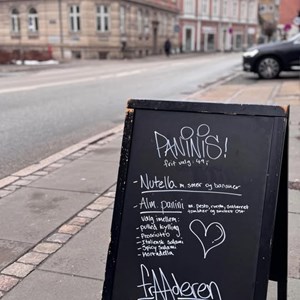 PANINIS!
frit valg: 49,-
- Nutella m. smør og bananer
- Alm. panini m. pesto, rucola,
tomater og
valg mellem:
- pulled kylling
- Prosciutto
- Italiensk salami
- Spicy salami
- Mortadella